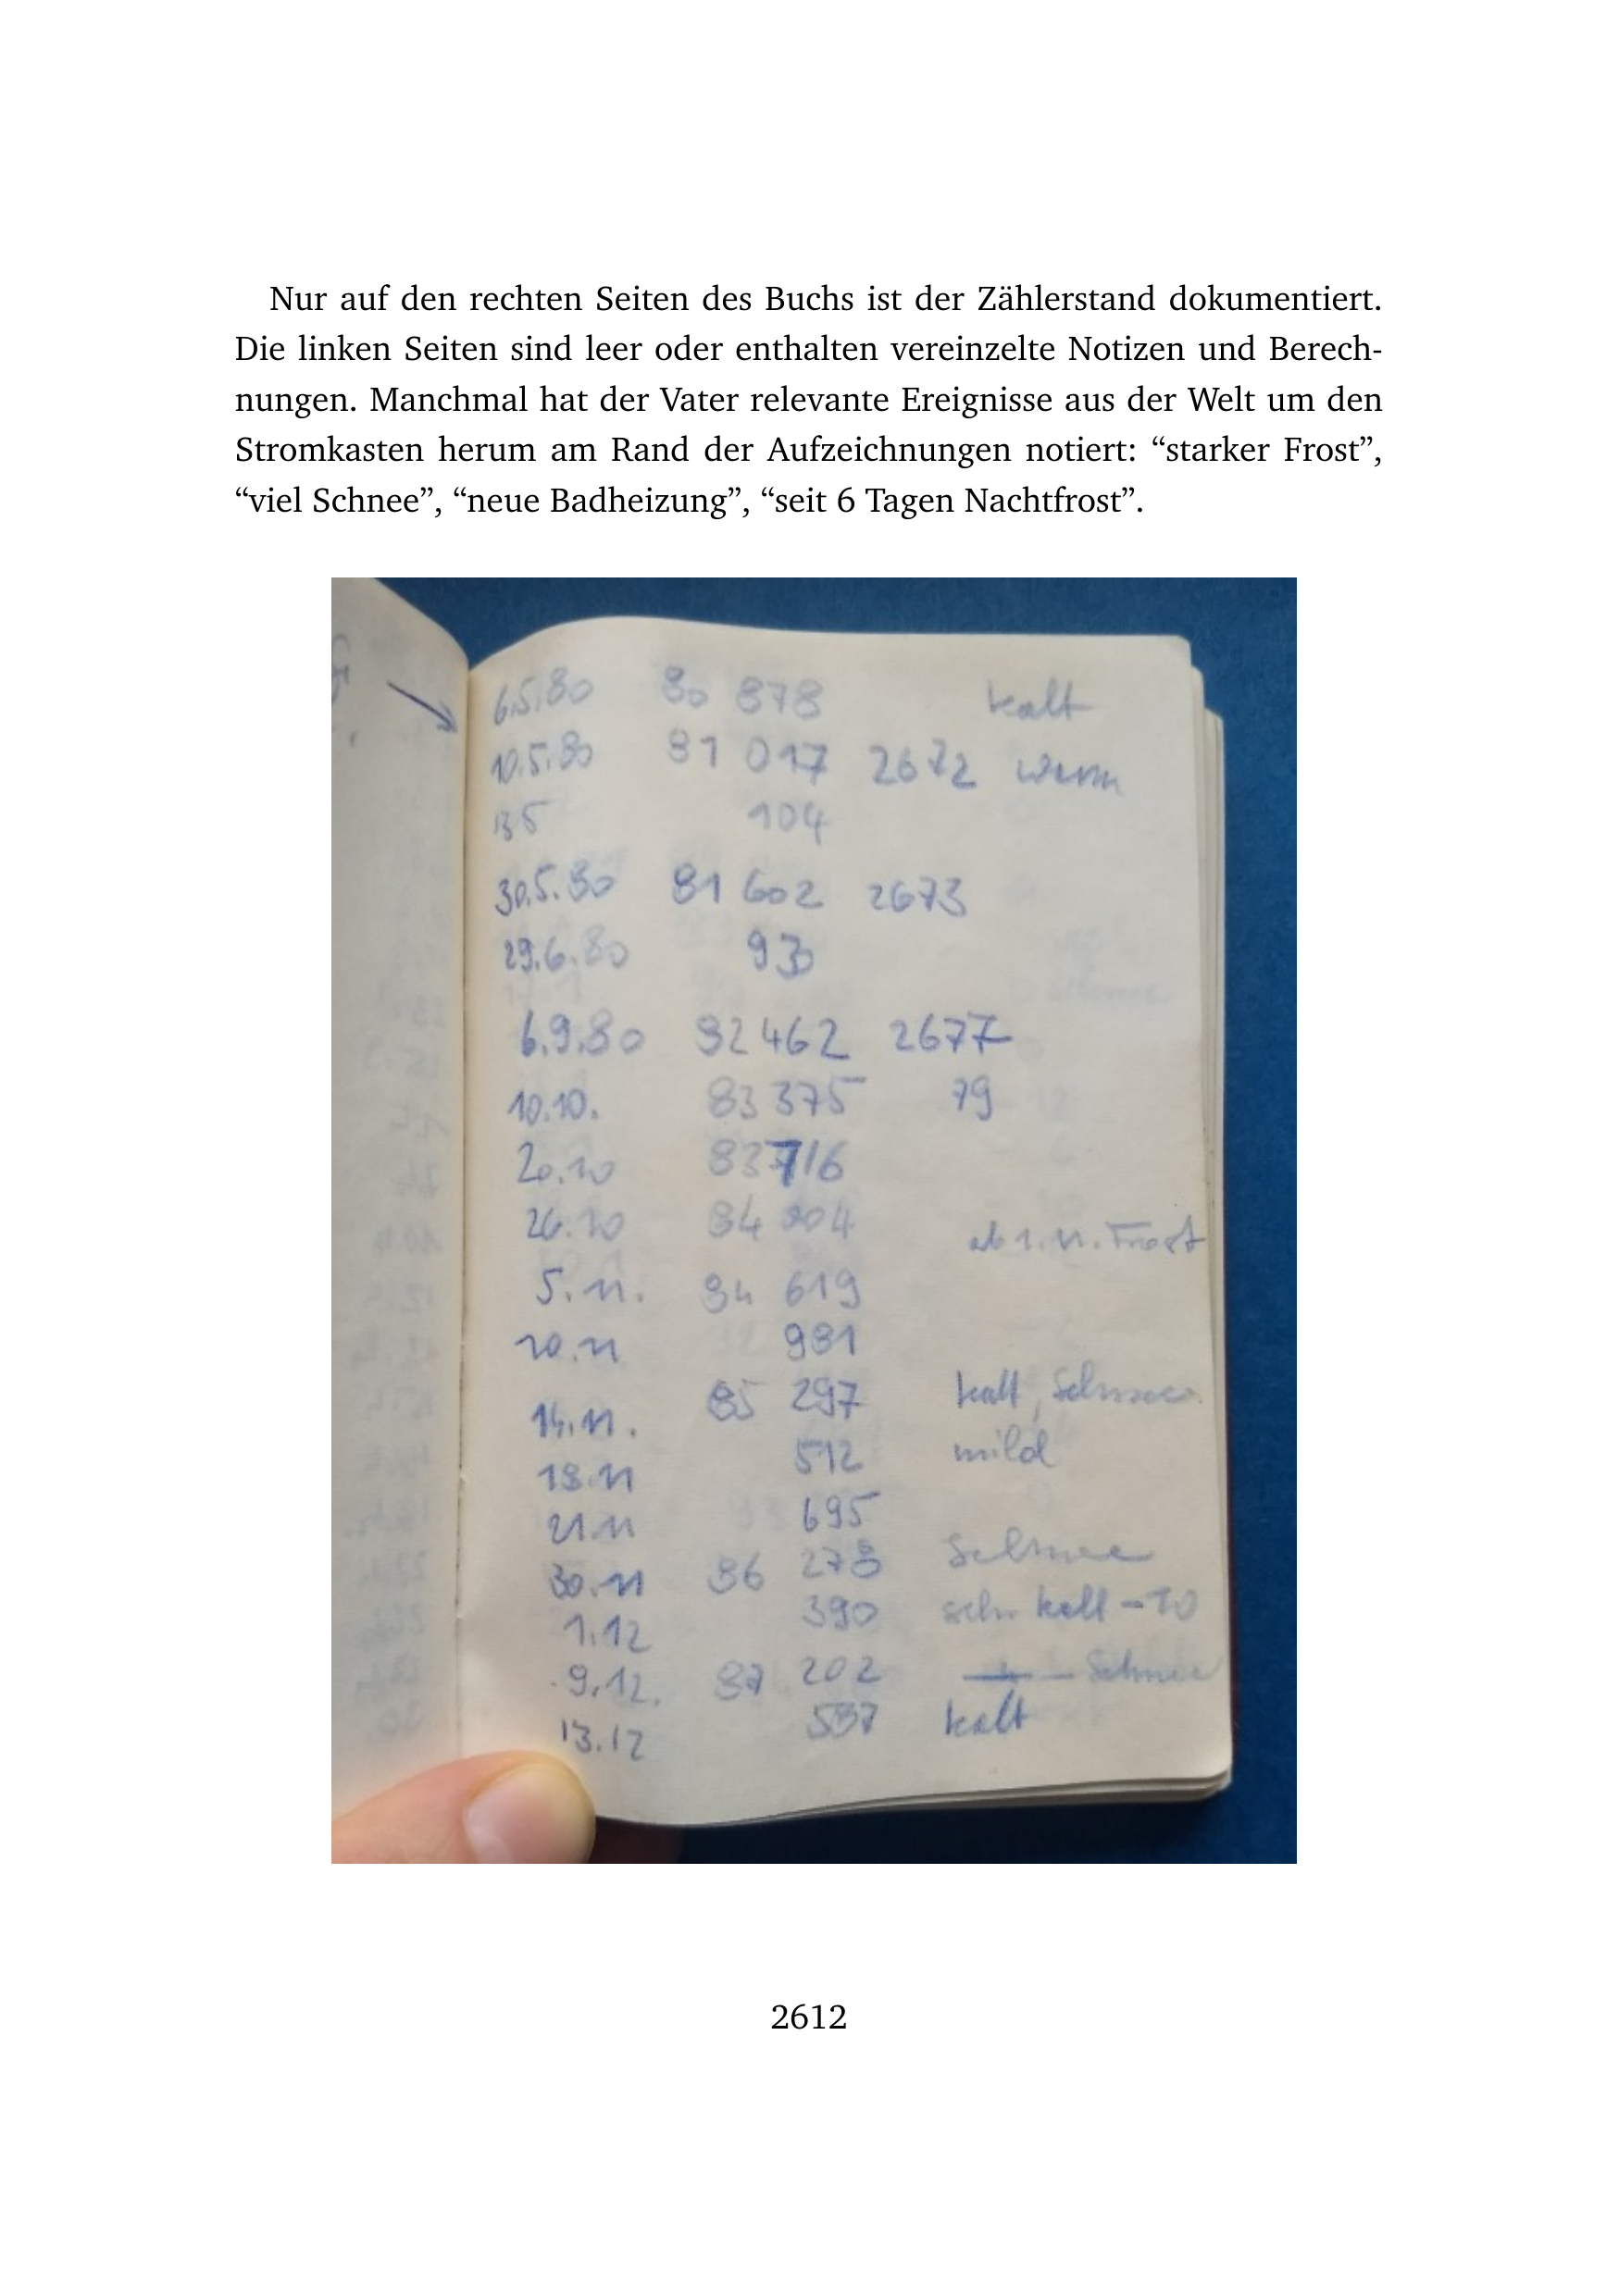 Nur auf den rechten Seiten des Buchs ist der Zählerstand dokumentiert.
Die linken Seiten sind leer oder enthalten vereinzelte Notizen und Berech-
nungen. Manchmal hat der Vater relevante Ereignisse aus der Welt um den
Stromkasten herum am Rand der Aufzeichnungen notiert: “starker Frost”,
“viel Schnee”, “neue Badheizung”, “seit 6 Tagen Nachtfrost”.
6.5.80 80 878 kalt
10.5.80 81 017 2672 warm
13.5 104
30.5.80 81 602 2673
29.6.80
6.9.80 82462 2677
10.10. 83 375 79
20.10 83716
26.10 84 ab 1.11. Frost
5.11. 84 619
10.11 981
14.11. 85 297 kalt, Schnee
18.11 512 mild
21.11 695
30.11 86 278 Schnee
1.12 390 sehr kalt -10
9.12. 87 202 Schnee
13.12 537 kalt
2612